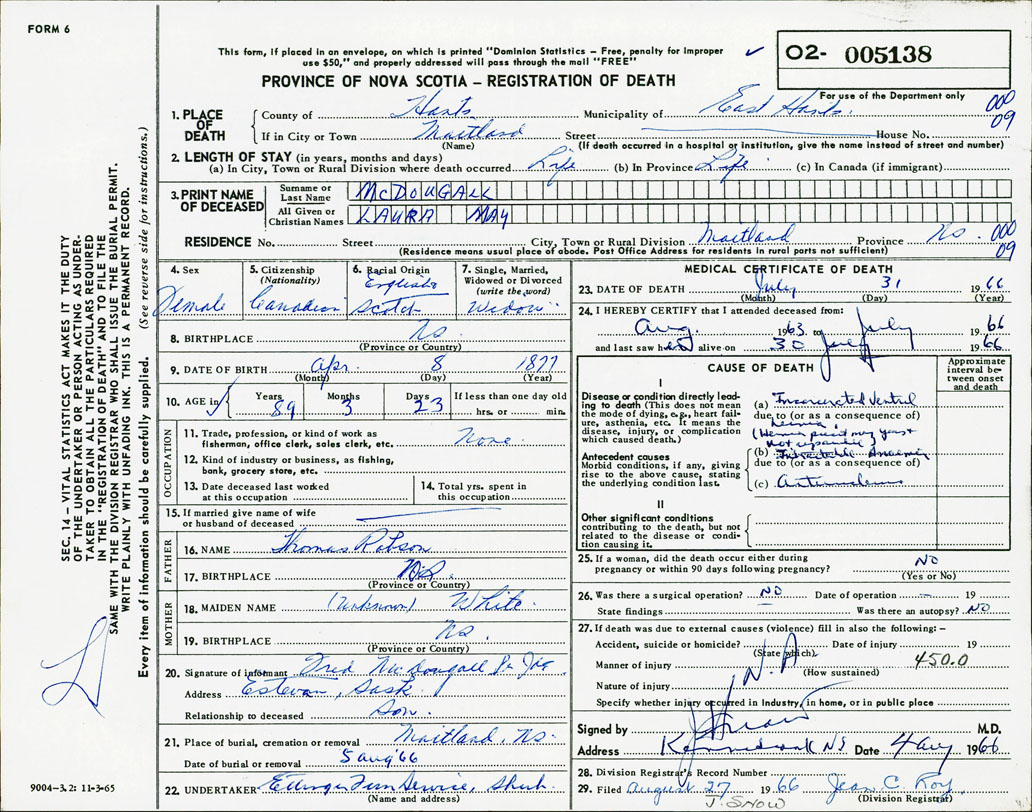 FORM 6
This form, if placed in an envelope, on which is printed "Dominion Statistics – Free, penalty for improper
use $50," and properly addressed will pass through the mail "FREE"
PROVINCE OF NOVA SCOTIA – REGISTRATION OF DEATH
O2- 005138
For use of the Department only
000
09
1. PLACE OF DEATH
County of Hants Municipality of East Hants.
If in City or Town Maitland Street House No.
(Name) (If death occurred in a hospital or institution, give the name instead of street and number)
2. LENGTH OF STAY (in years, months and days)
(a) In City, Town or Rural Division where death occurred Life (b) In Province Life (c) In Canada (if immigrant)
3. PRINT NAME OF DECEASED
Surname or Last Name McDOUGALL
All Given or Christian Names LAURA MAY
RESIDENCE No. Street City, Town or Rural Division Maitland Province Ns. 000
09
(Residence means usual place of abode. Post Office Address for residents in rural parts not sufficient)
4. Sex
Female
5. Citizenship
(Nationality)
Canadian
6. Racial Origin
English
Scotch
7. Single, Married, Widowed or Divorced
(write the word)
Widow
8. BIRTHPLACE Ns.
(Province or Country)
9. DATE OF BIRTH Apr. 8 1877
(Month) (Day) (Year)
10. AGE in Years 89 Months 3 Days 23 If less than one day old
hrs. or min.
OCCUPATION
11. Trade, profession, or kind of work as
fisherman, office clerk, sales clerk, etc. None.
12. Kind of industry or business, as fishing,
bank, grocery store, etc.
13. Date deceased last worked
at this occupation
14. Total yrs. spent in
this occupation
15. If married give name of wife
or husband of deceased
FATHER
16. NAME Thomas Robson
17. BIRTHPLACE
(Province or Country)
MOTHER
18. MAIDEN NAME (Unknown) White.
19. BIRTHPLACE Ns.
(Province or Country)
20. Signature of informant Fred McDougall
Address Estevan, Sask.
Relationship to deceased Son.
21. Place of burial, cremation or removal Maitland, Ns.
Date of burial or removal 5 aug '66
22. UNDERTAKER Ettinger Fun Service, Shub.
(Name and address)
MEDICAL CERTIFICATE OF DEATH
23. DATE OF DEATH July 31 1966
(Month) (Day) (Year)
24. I HEREBY CERTIFY that I attended deceased from:
Aug. 1963 to July 1966
and last saw her alive on 30 July 1966
CAUSE OF DEATH
Approximate interval between onset and death
I
Disease or condition directly leading to death (This does not mean
the mode of dying, e.g., heart failure, asthenia, etc. It means the
disease, injury, or complication
which caused death.)
(a) Incarcerated Ventral
due to (or as a consequence of)
hernia
(Hernia present many years
not repairable)
Antecedent causes
Morbid conditions, if any, giving
rise to the above cause, stating
the underlying condition last.
(b) Intractable Anaemia
due to (or as a consequence of)
(c)
II
Other significant conditions
contributing to the death, but not
related to the disease or condition causing it.
25. If a woman, did the death occur either during
pregnancy or within 90 days following pregnancy? NO
(Yes or No)
26. Was there a surgical operation? NO Date of operation – 19
State findings Was there an autopsy? NO
27. If death was due to external causes (violence) fill in also the following: –
Accident, suicide or homicide? Date of injury 19
(State which)
Manner of injury 450.0
(How sustained)
N.A
Nature of injury
Specify whether injury occurred in Industry, in home, or in public place
Signed by J Snow M.D.
Address Kennetcook NS Date 4 Aug 1966
28. Division Registrar's Record Number
29. Filed August 27 1966 Jean C. Roy
J. SNOW (Division Registrar)
SEC. 14 – VITAL STATISTICS ACT MAKES IT THE DUTY
OF THE UNDERTAKER OR PERSON ACTING AS UNDER-
TAKER TO OBTAIN ALL THE PARTICULARS REQUIRED
IN THE "REGISTRATION OF DEATH" AND TO FILE THE
SAME WITH THE DIVISION REGISTRAR WHO SHALL ISSUE THE BURIAL PERMIT.
WRITE PLAINLY WITH UNFADING INK. THIS IS A PERMANENT RECORD.
Every item of information should be carefully supplied. (See reverse side for instructions.)
9004–3.2: 11-3-65